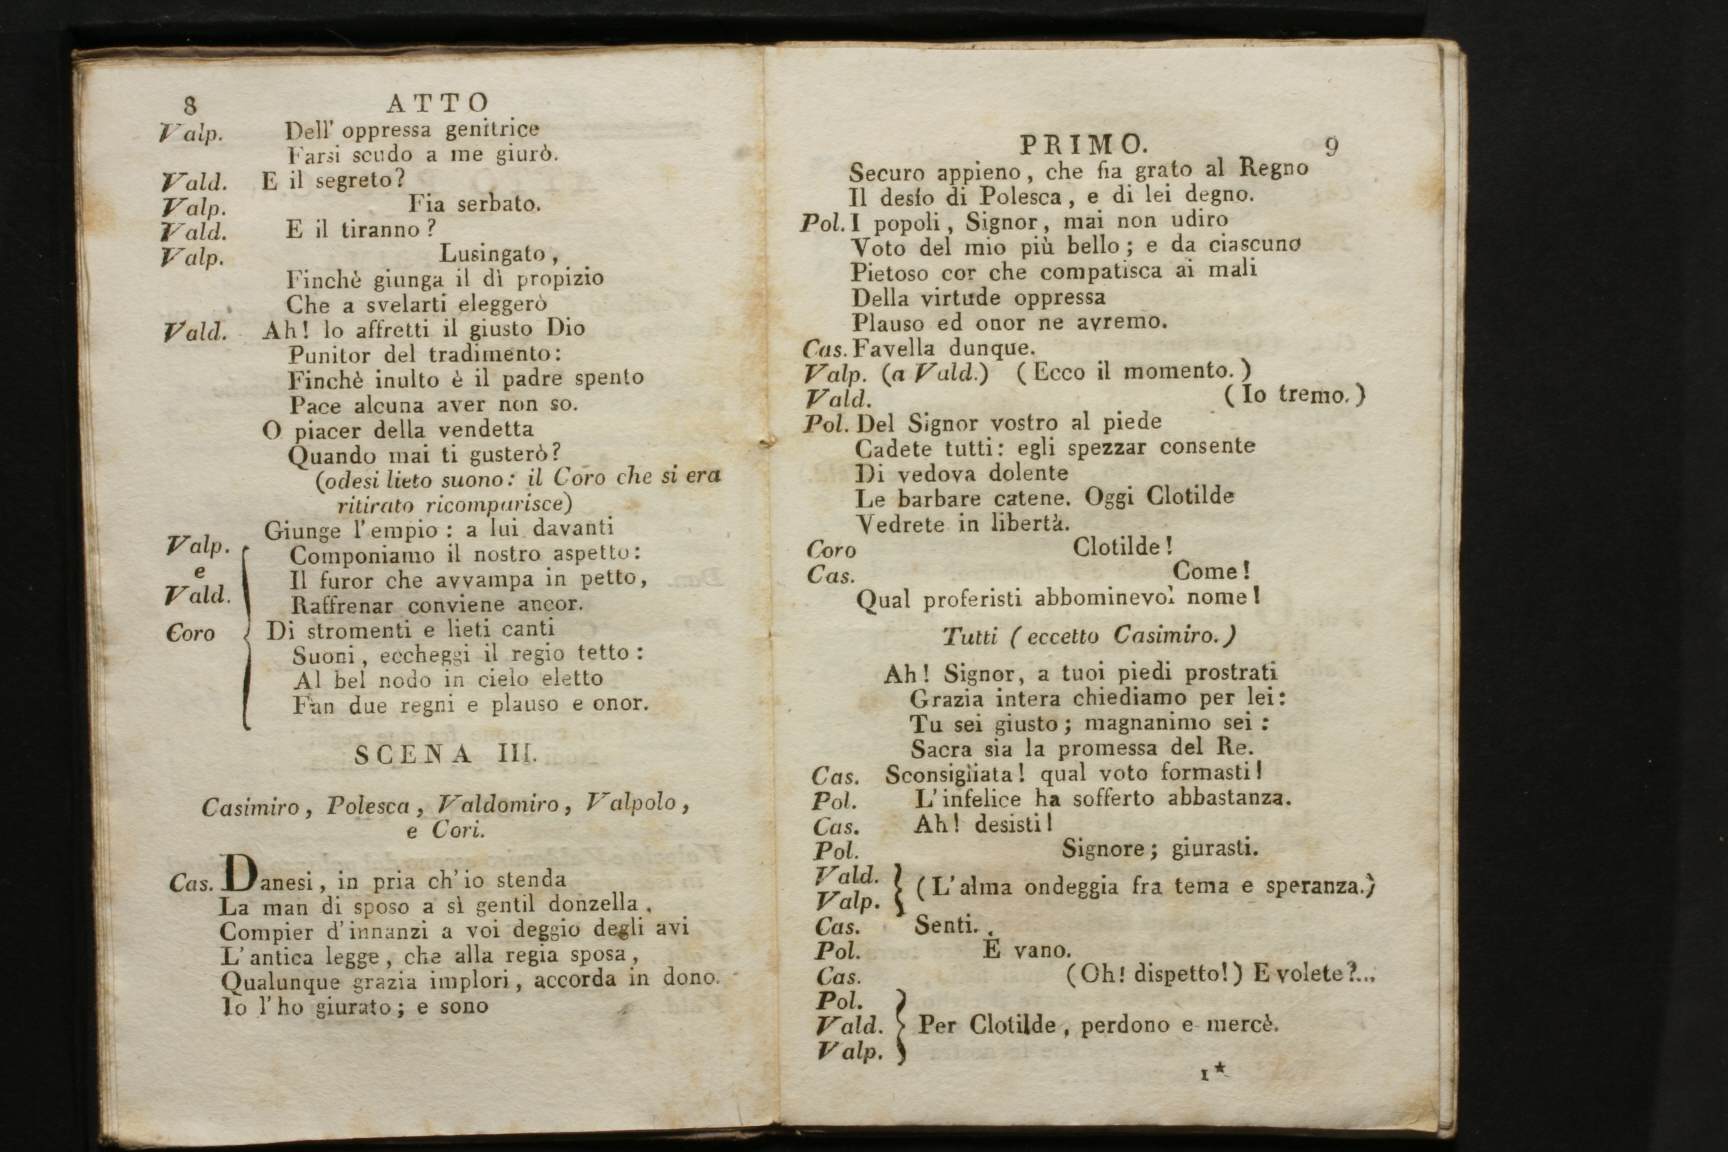 8 ATTO
Valp. Dell' oppressa genitrice
Farsi scudo a me giurò.
Vald. E il segreto?
Valp. Fia serbato.
Vald. E il tiranno?
Valp. Lusingato,
Finchè giunga il dì propizio
Che a svelarti eleggerò
Vald. Ah! lo affretti il giusto Dio
Punitor del tradimento:
Finchè inulto è il padre spento
Pace alcuna aver non so.
O piacer della vendetta
Quando mai ti gusterò?
(odesi lieto suono: il Coro che si era
ritirato ricomparisce)
Giunge l'empio: a lui davanti
Valp. Componiamo il nostro aspetto:
e Il furor che avvampa in petto,
Vald. Raffrenar conviene ancor.
Coro Di stromenti e lieti canti
Suoni, eccheggi il regio tetto:
Al bel nodo in cielo eletto
Fan due regni e plauso e onor.
SCENA III.
Casimiro, Polesca, Valdomiro, Valpolo,
e Cori.
Cas. Danesi, in pria ch'io stenda
La man di sposo a sì gentil donzella,
Compier d'innanzi a voi deggio degli avi
L'antica legge, che alla regia sposa,
Qualunque grazia implori, accorda in dono.
Io l'ho giurato; e sono
PRIMO. 9
Securo appieno, che fia grato al Regno
Il desío di Polesca, e di lei degno.
Pol. I popoli, Signor, mai non udiro
Voto del mio più bello; e da ciascuno
Pietoso cor che compatisca ai mali
Della virtude oppressa
Plauso ed onor ne avremo.
Cas. Favella dunque.
Valp. (a Vald.) (Ecco il momento.)
Vald. (Io tremo.)
Pol. Del Signor vostro al piede
Cadete tutti: egli spezzar consente
Di vedova dolente
Le barbare catene. Oggi Clotilde
Vedrete in libertà.
Coro Clotilde!
Cas. Come!
Qual proferisti abbominevol nome!
Tutti (eccetto Casimiro.)
Ah! Signor, a tuoi piedi prostrati
Grazia intera chiediamo per lei:
Tu sei giusto; magnanimo sei:
Sacra sia la promessa del Re.
Cas. Sconsigliata! qual voto formasti!
Pol. L'infelice ha sofferto abbastanza.
Cas. Ah! desisti!
Pol. Signore; giurasti.
Vald.
Valp. (L'alma ondeggia fra tema e speranza.)
Cas. Senti.
Pol. È vano.
Cas. (Oh! dispetto!) E volete?...
Pol.
Vald. Per Clotilde, perdono e mercè.
Valp.
1*